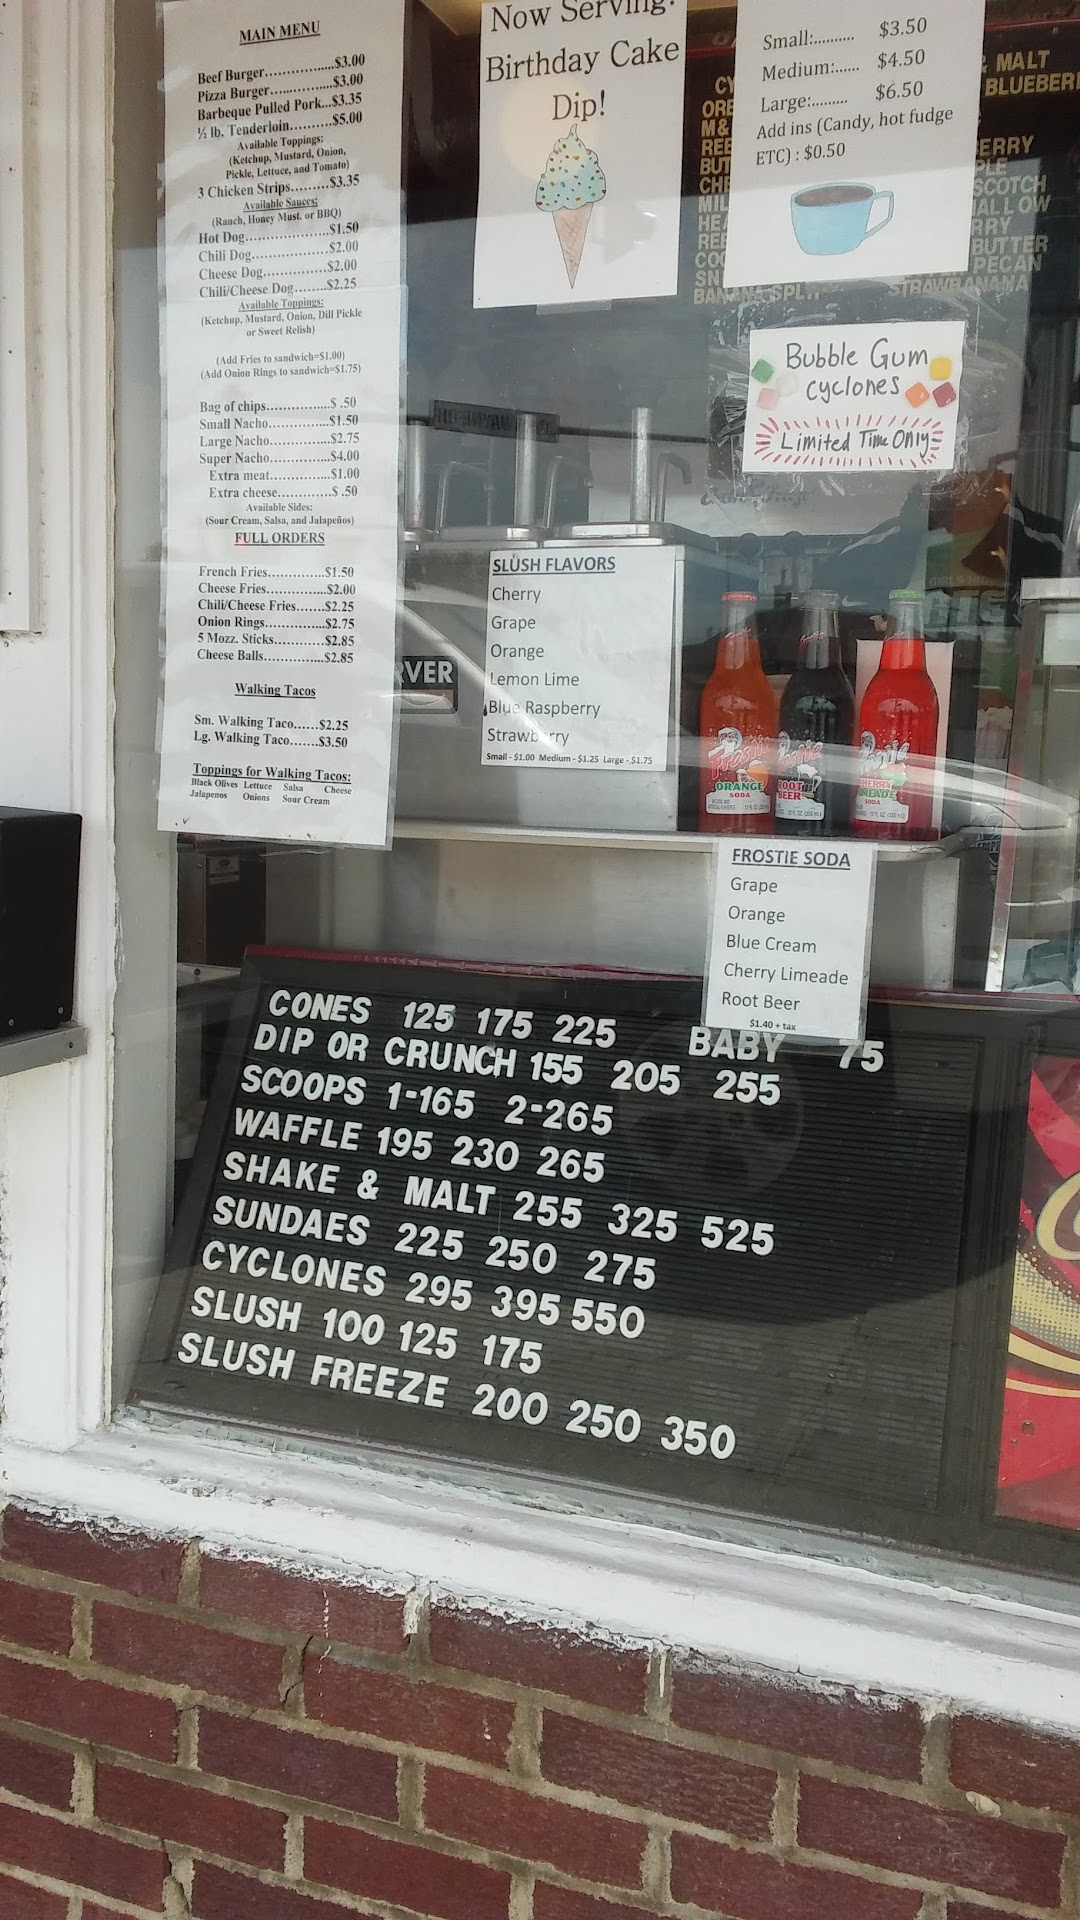 MAIN MENU
Beef Burger................$3.00
Pizza Burger...............$3.00
Barbeque Pulled Pork...$3.35
½ lb. Tenderloin..........$5.00
Available Toppings:
(Ketchup, Mustard, Onion,
Pickle, Lettuce, and Tomato)
3 Chicken Strips.........$3.35
Available Sauces:
(Ranch, Honey Must. or BBQ)
Hot Dog....................$1.50
Chili Dog..................$2.00
Cheese Dog...............$2.00
Chili/Cheese Dog........$2.25
Available Toppings:
(Ketchup, Mustard, Onion, Dill Pickle
or Sweet Relish)
(Add Fries to sandwich=$1.00)
(Add Onion Rings to sandwich=$1.75)
Bag of chips...............$ .50
Small Nacho..............$1.50
Large Nacho..............$2.75
Super Nacho..............$4.00
Extra meat..............$1.00
Extra cheese............$ .50
Available Sides:
(Sour Cream, Salsa, and Jalapeños)
FULL ORDERS
French Fries.............$1.50
Cheese Fries.............$2.00
Chili/Cheese Fries.......$2.25
Onion Rings..............$2.75
5 Mozz. Sticks...........$2.85
Cheese Balls..............$2.85
Walking Tacos
Sm. Walking Taco......$2.25
Lg. Walking Taco.......$3.50
Toppings for Walking Tacos:
Black Olives Lettuce Salsa Cheese
Jalapenos Onions Sour Cream
Now Serving:
Birthday Cake
Dip!
Small:.......... $3.50
Medium:...... $4.50
Large:......... $6.50
Add ins (Candy, hot fudge
ETC) : $0.50
MALT
BANANA SPLIT
BUTTER
PECAN
STRAWBANANA
Bubble Gum
cyclones
Limited Time Only
SLUSH FLAVORS
Cherry
Grape
Orange
Lemon Lime
Blue Raspberry
Strawberry
Small - $1.00 Medium - $1.25 Large - $1.75
Frostie
ORANGE
SODA
Frostie
ROOT
BEER
Frostie
CHERRY
LIMEADE
SODA
FROSTIE SODA
Grape
Orange
Blue Cream
Cherry Limeade
Root Beer
$1.40 + tax
CONES 125 175 225 BABY 75
DIP OR CRUNCH 155 205 255
SCOOPS 1-165 2-265
WAFFLE 195 230 265
SHAKE & MALT 255 325 525
SUNDAES 225 250 275
CYCLONES 295 395 550
SLUSH 100 125 175
SLUSH FREEZE 200 250 350